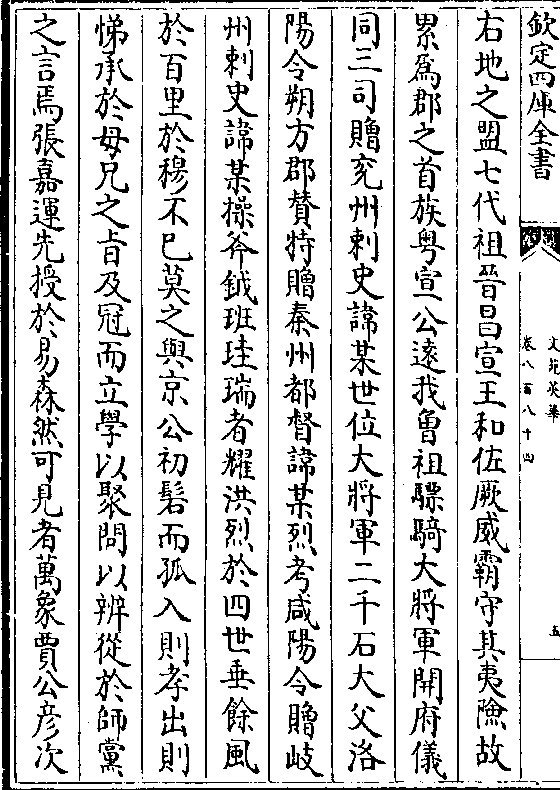 欽定四庫全書
文苑英華
卷八百八十四
五
右地之盟七代祖晉昌宣王和佐厥威霸守其夷隩故
累爲郡之首族粤宣公逺我曾祖驃騎大將軍開府儀
同三司贈兖州刺史諱某世位大將軍二千石大父洛
陽令朔方郡賛特贈秦州都督諱某烈考咸陽令贈岐
州刺史諱某操斧鉞班珪瑞者耀洪烈於四世垂餘風
於百里於穆不已莫之與京公初髫而孤入則孝出則
悌承於母兄之㫖及冠而立學以聚問以辨從於師黨
之言焉張嘉運先授於易森然可見者萬象賈公彦次